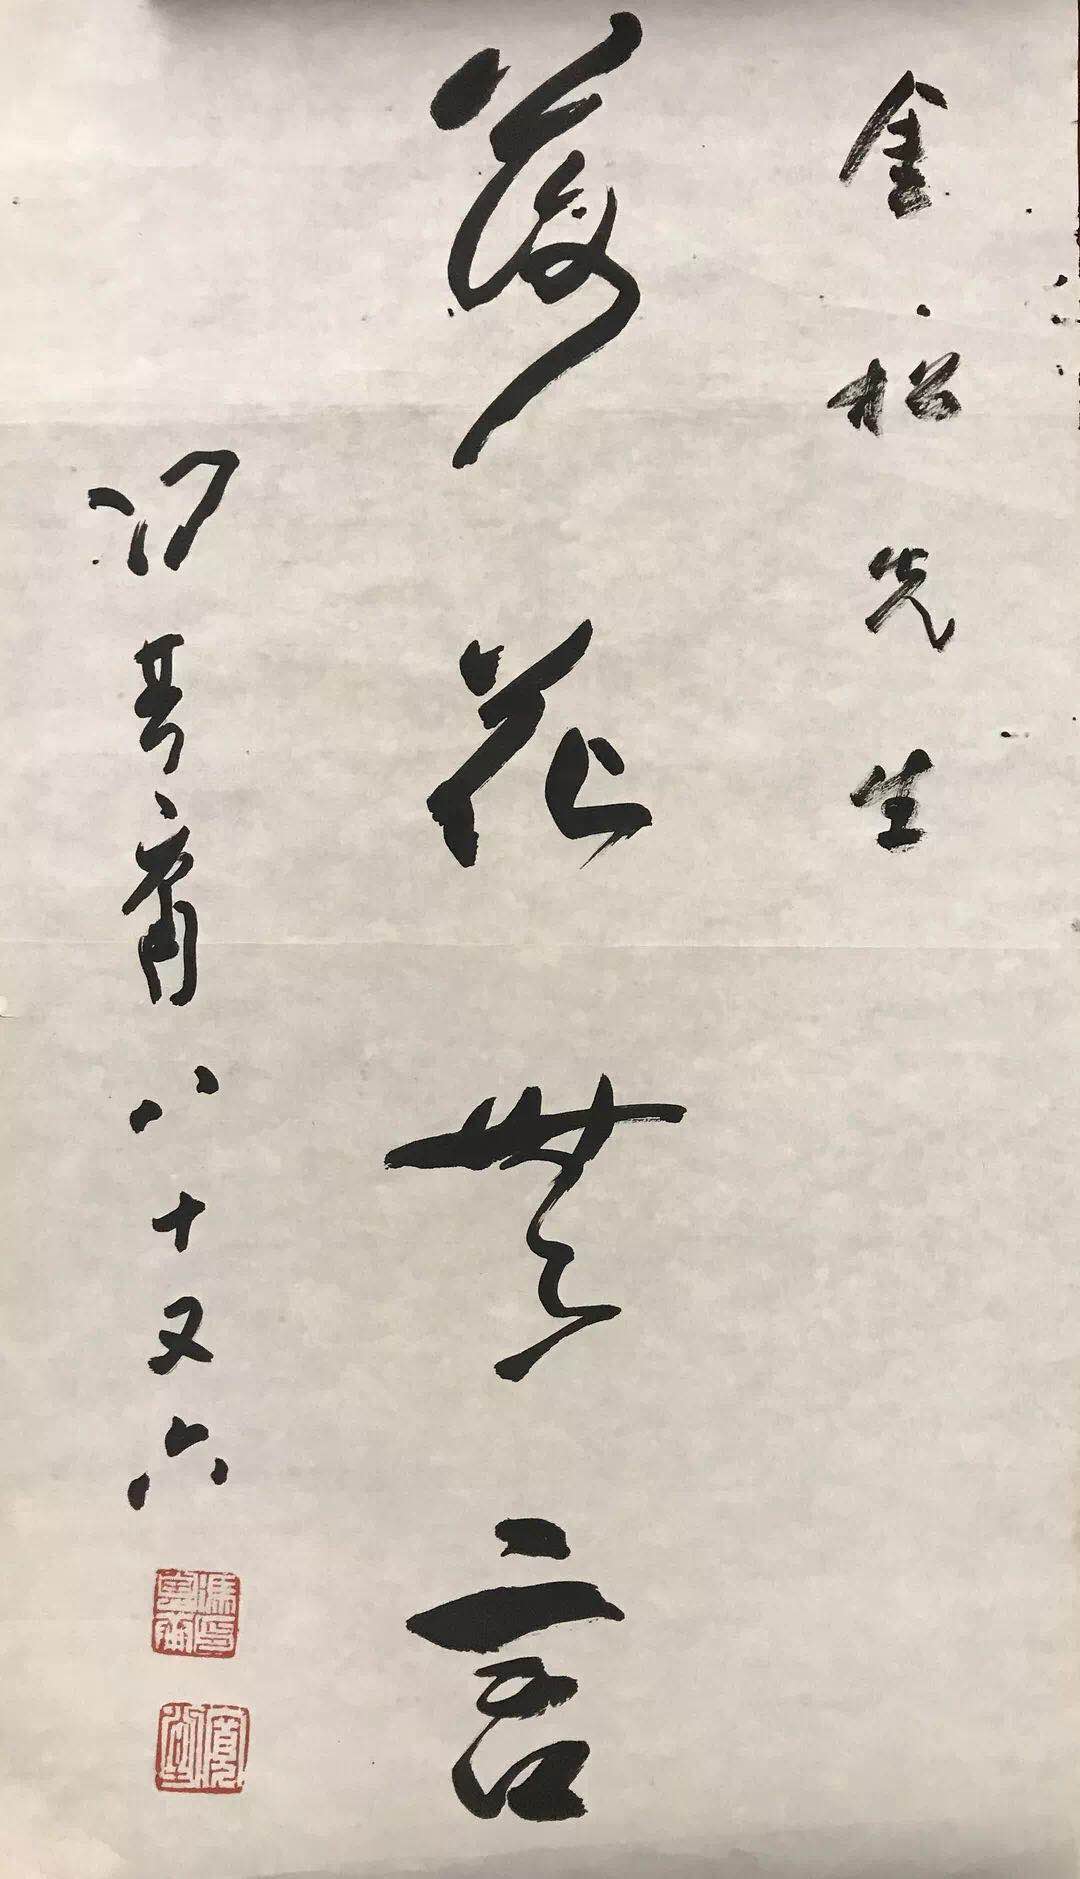 金松先生
落花無言
冯其庸八十又六
寬堂